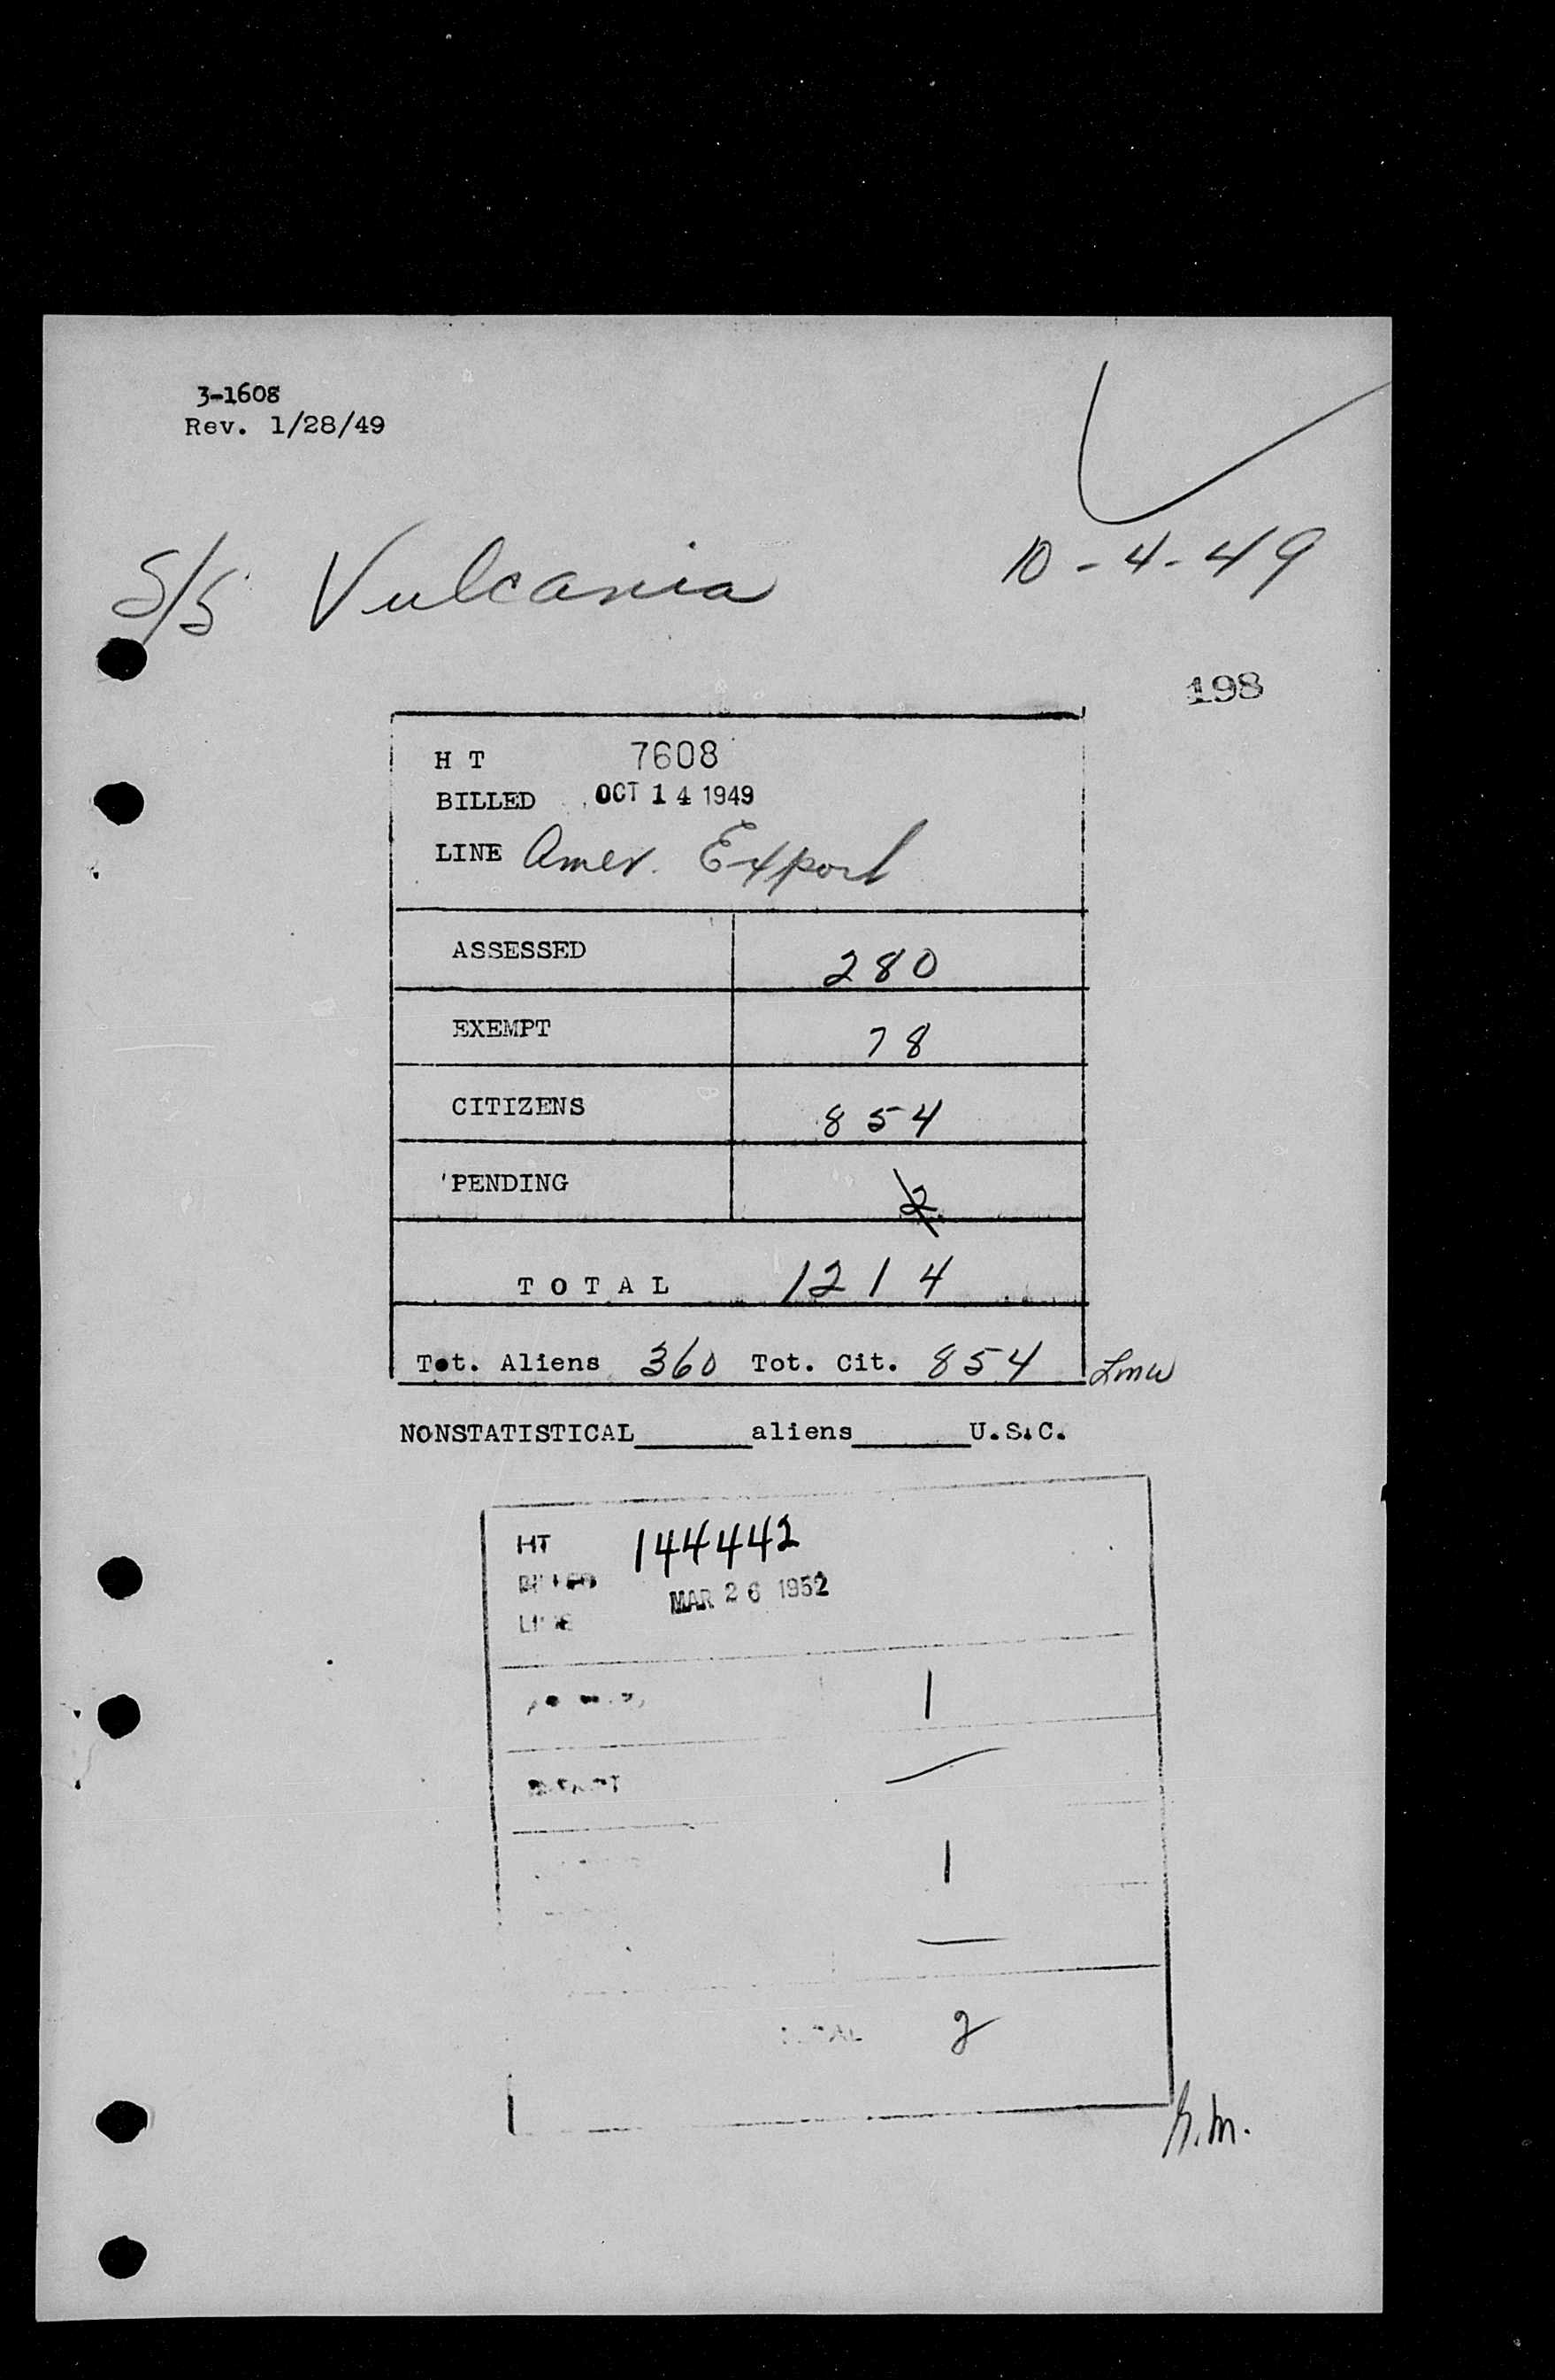 3-1608
Rev. 1/28/49
S/S Vulcania 10-4-49
198
H T 7608
BILLED OCT 14 1949
LINE Amer. Export
ASSESSED 280
EXEMPT 78
CITIZENS 854
PENDING 2
TOTAL 1214
Tot. Aliens 360 Tot. Cit. 854 Lmw
NONSTATISTICAL______aliens______U.S.C.
HT 144442
MAR 26 1952
LINE
1
1
2